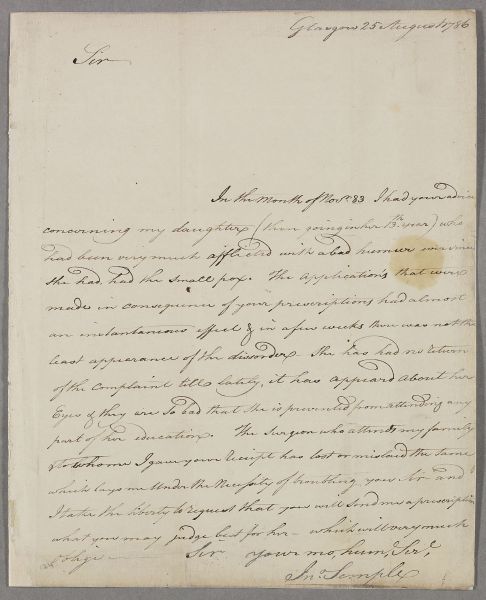 Glasgow 25 August 1786
Sir
In the Month of Novr. 83 I had your advice
concerning my daughter (then going in her 13th. year) who
had been very much afflicted with a bad humor ever since
she had, had the Small pox. The applications that were
made in consequence of your prescriptions had almost
an instantaneous effect & in a few weeks there was not the
least appearance of the disorder. She has had no return
of the complaint till lately, it has appeard about her
Eyes & they are so bad that she is prevented from attending any
part of her education. The Surgeon who attends my family
& to whom I gave your Receipt has lost or mislaid the same
which lays me Under the Necessity of troubling you Sir and
I take the liberty to request that you will send me a prescription
what you may judge best for her – which will very much
oblige — Sir your mo, hum, Ser,t
Jno. Semple